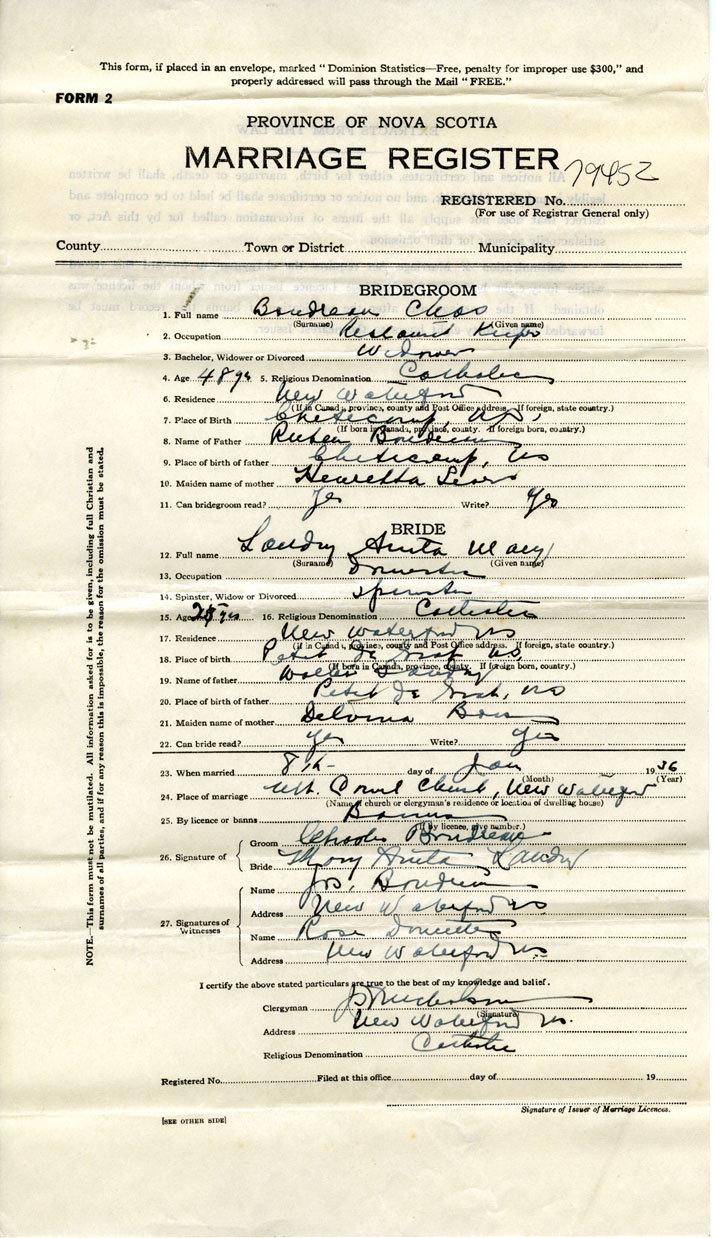 This form, if placed in an envelope, marked “ Dominion Statistics—Free, penalty for improper use $300,” and
properly addressed will pass through the Mail “ FREE.”
FORM 2
PROVINCE OF NOVA SCOTIA
MARRIAGE REGISTER
79452
REGISTERED No.
(For use of Registrar General only)
County Town or District Municipality
BRIDEGROOM
1. Full name Boudreau Chas
(Surname) (Given name)
2. Occupation Restaurant Keeper
3. Bachelor, Widower or Divorced Widower
4. Age 48 yrs 5. Religious Denomination Catholic
6. Residence New Waterford
(If in Canada, province, county and Post Office address. If foreign, state country.)
7. Place of Birth Cheticamp, NS
(If born in Canada, province, county. If foreign born, country.)
8. Name of Father Ruben Boudreau
9. Place of birth of father Cheticamp, NS
10. Maiden name of mother Henretta
11. Can bridegroom read? Yes Write? Yes
BRIDE
12. Full name Landry Anita Mary
(Surname) (Given name)
13. Occupation Domestic
14. Spinster, Widow or Divorced Spinster
15. Age yrs 16. Religious Denomination Catholic
17. Residence New Waterford NS
(If in Canada, province, county and Post Office address. If foreign, state country.)
18. Place of birth Petit De Grat, NS
(If born in Canada, province, county. If foreign born, country.)
19. Name of father Walter Landry
20. Place of birth of father Petit De Grat, NS
21. Maiden name of mother Delvina
22. Can bride read? Yes Write? Yes
23. When married 8th day of Jan 1936
(Month) (Year)
24. Place of marriage Mt. Carmel Church, New Waterford
(Name of church or clergyman's residence or location of dwelling house)
25. By licence or banns Banns
(If by licence, give number.)
26. Signature of Groom Charles Boudreau
Bride Mary Anita Landry
27. Signatures of Witnesses
Name Jos. Boudreau
Address New Waterford NS
Name Rose
Address New Waterford NS
I certify the above stated particulars are true to the best of my knowledge and belief.
Clergyman
(Signature)
Address New Waterford NS.
Religious Denomination Catholic
Registered No. Filed at this office day of 19
Signature of Issuer of Marriage Licences.
[SEE OTHER SIDE]
NOTE.—This form must not be mutilated. All information asked for is to be given, including full Christian and
surnames of all parties, and if for any reason this is impossible, the reason for the omission must be stated.